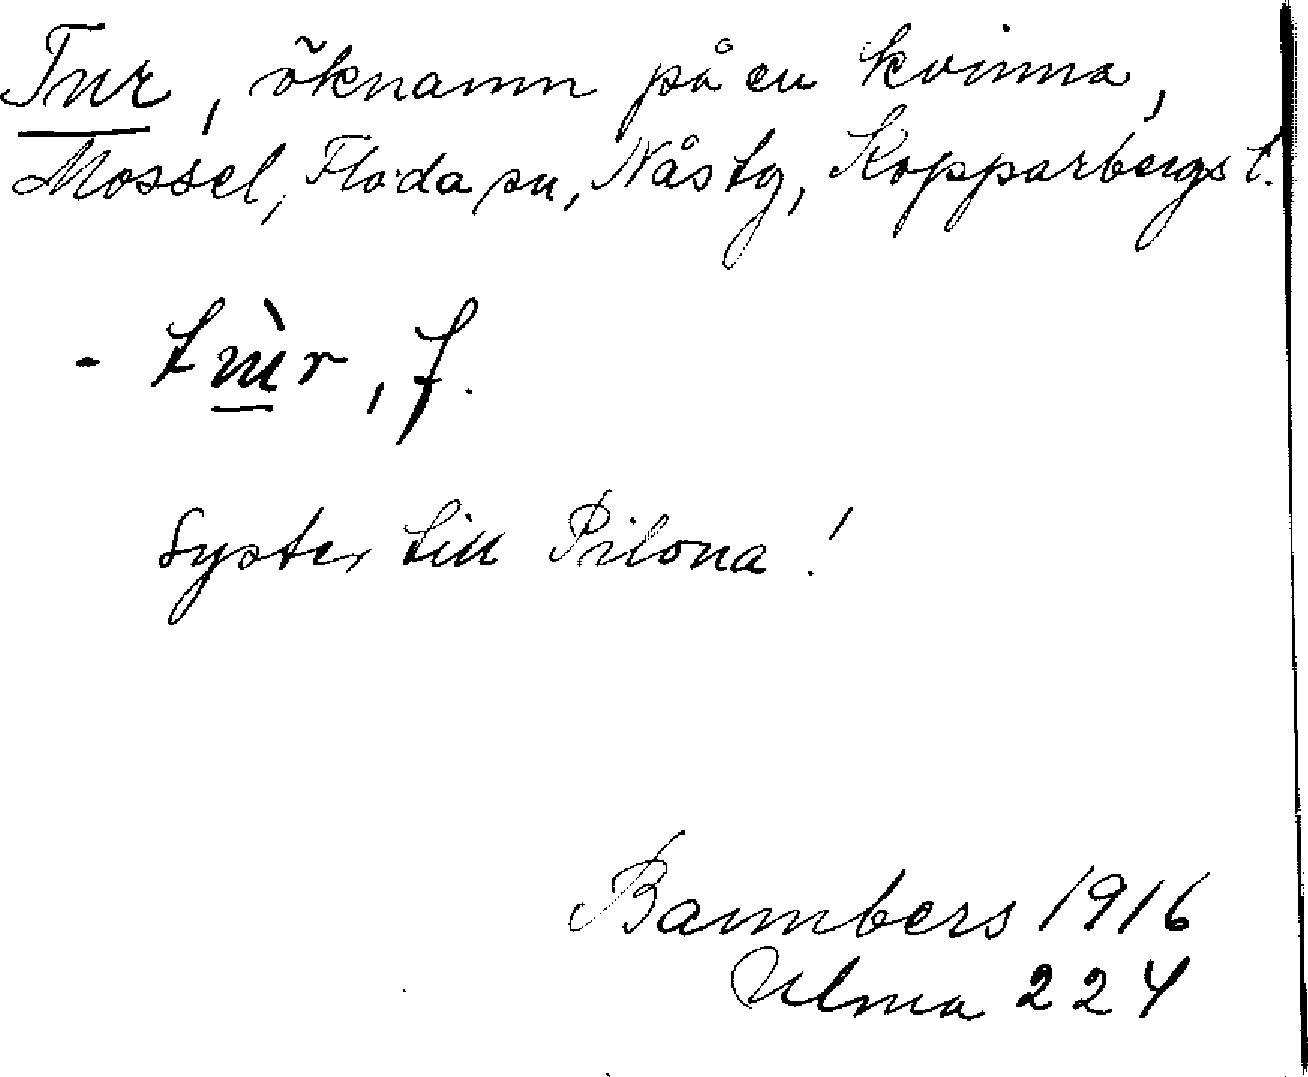 Tur, öknamn på en kvinna,
Mossel, Floda sn, Nås tg, Kopparbergs l.
- , f.
Syster till Pilona!
1916
Ulma 224